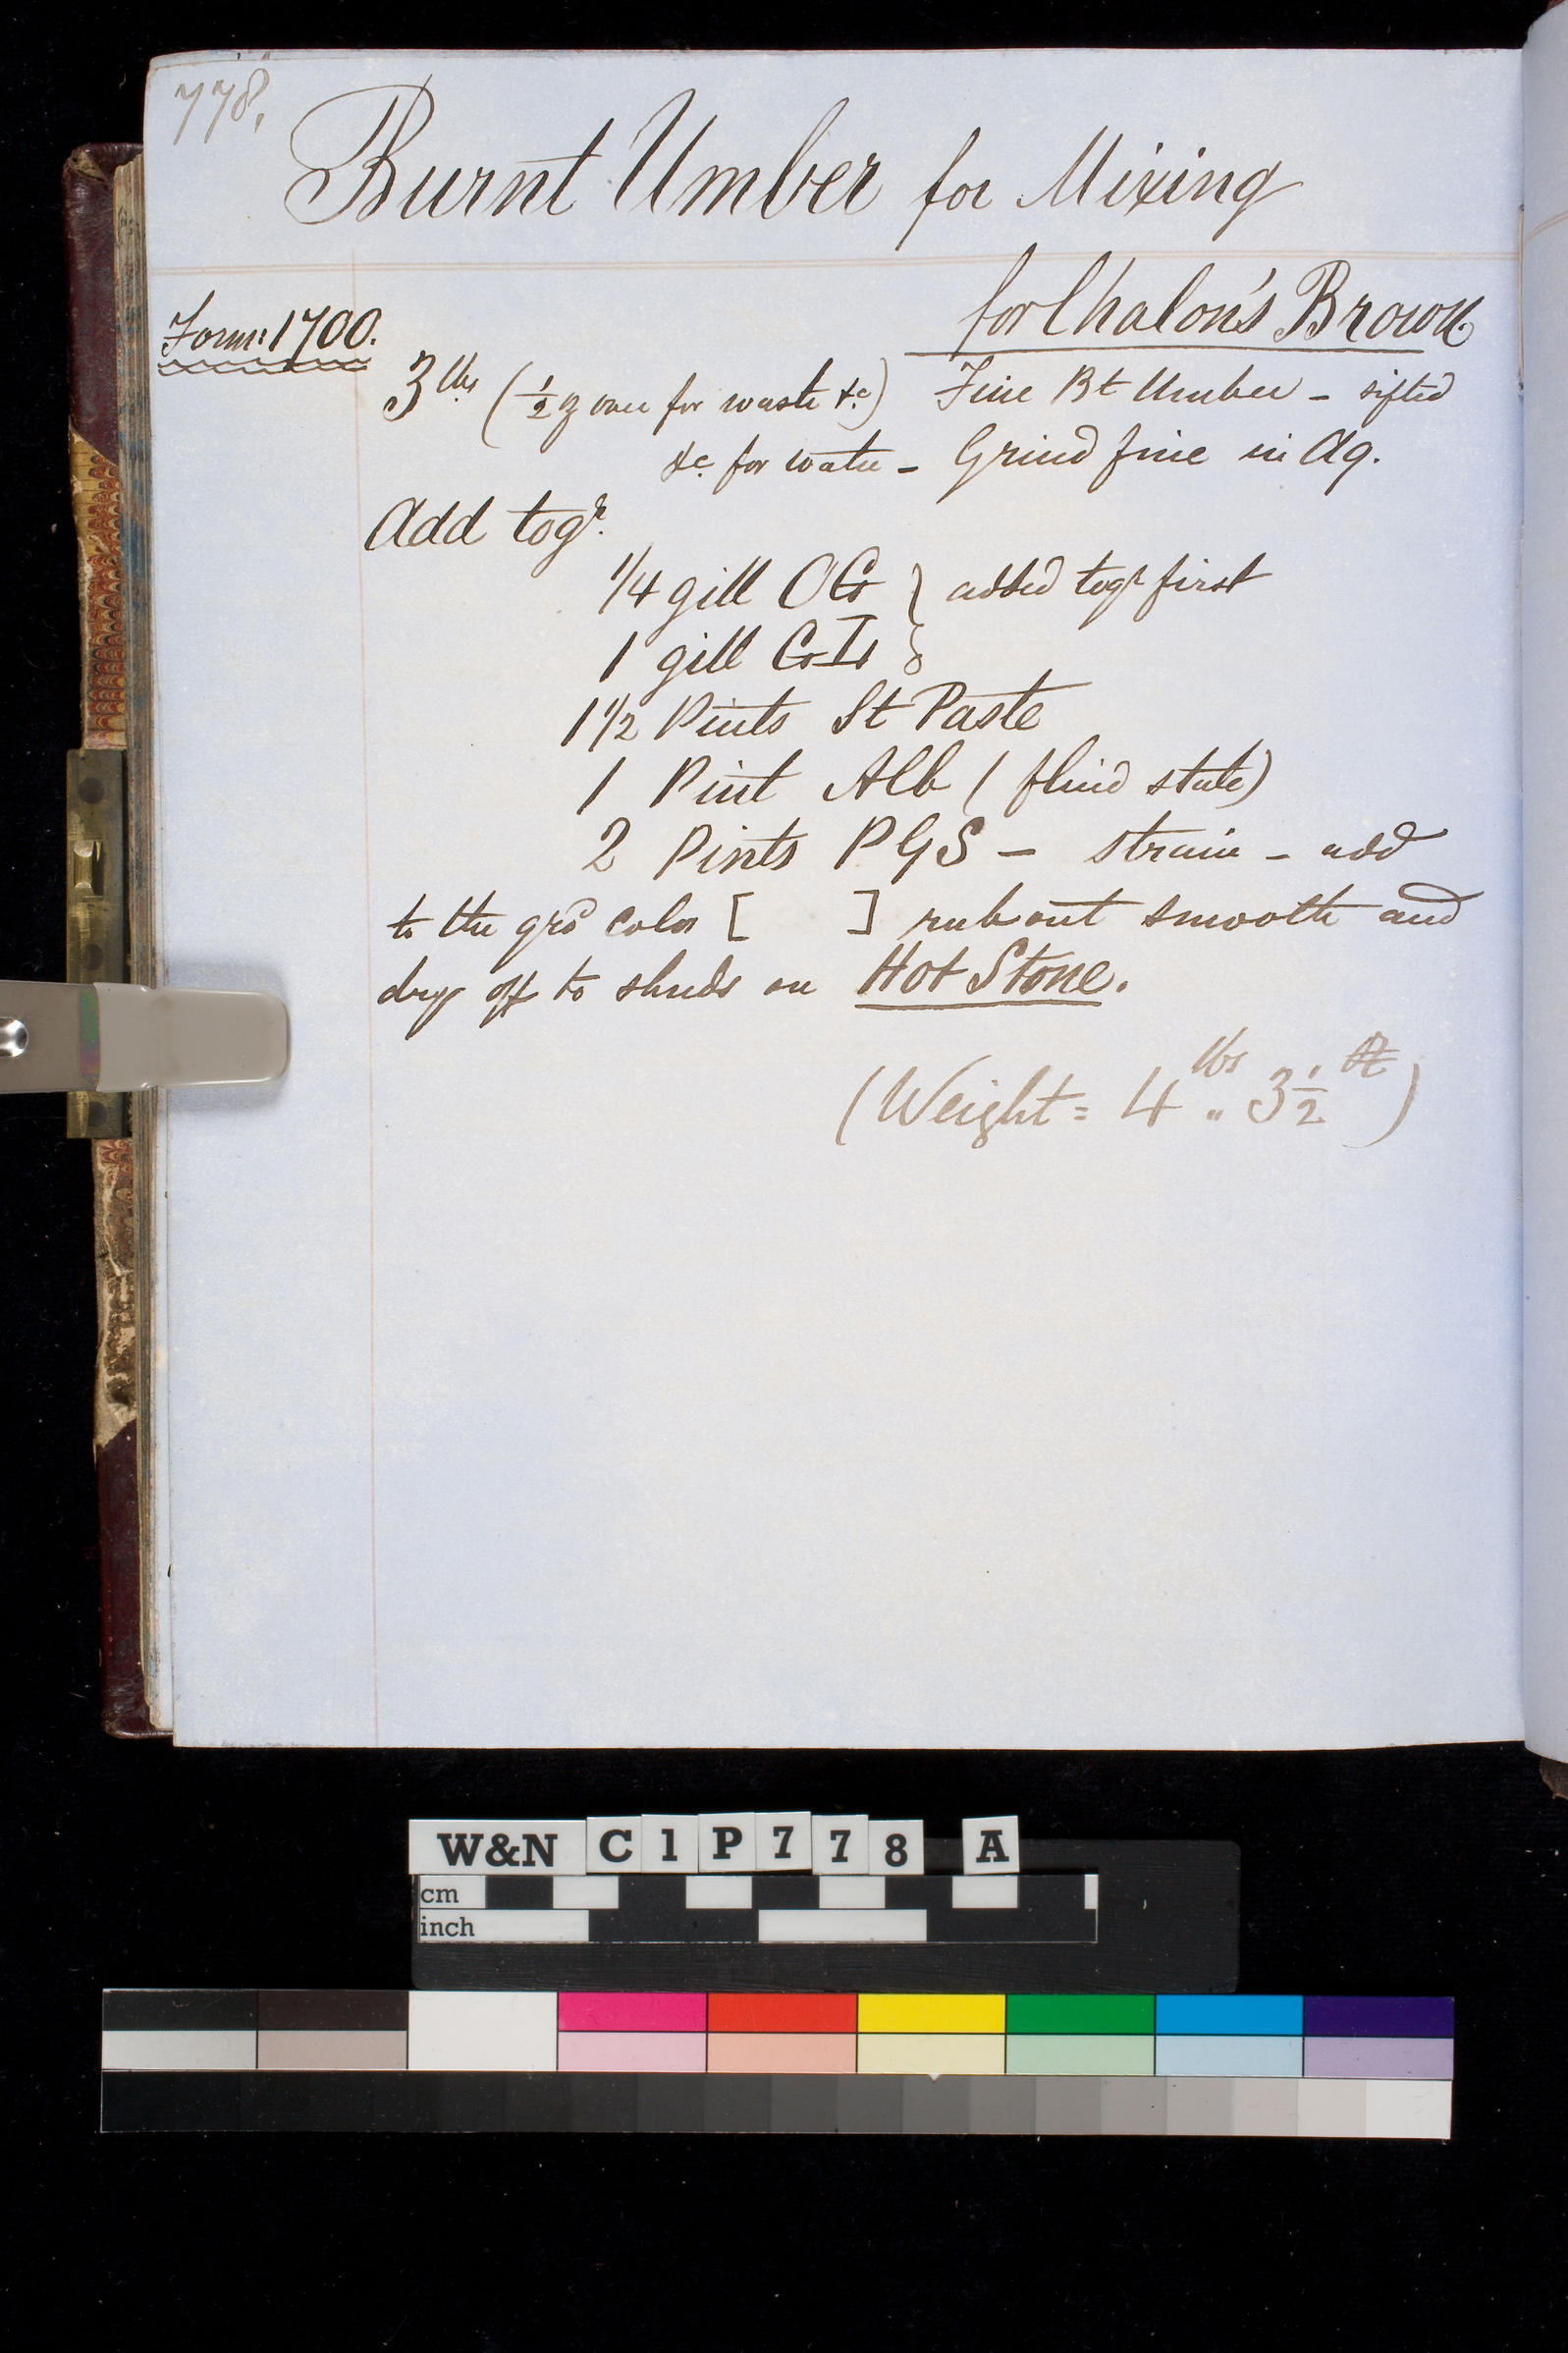 778,
Burnt Umber for Mixing
for Chalon's Brown
Form: 1700.
3 lbs (½ oz over for waste &c) Fine Bt Umber – sifted
&c for water – Grind fine in Aq.
Add togr.
1/4 gill OG } added togr first
1 gill
1 1/2 Pints St Paste
1 Pint Alb (fluid state)
2 Pints PGS – strain – add
to the grd color [ ] rub out smooth and
dry off to shreds on Hot Stone.
(Weight = 4 lbs „ 3½)
W&N C1P778 A
cm
inch